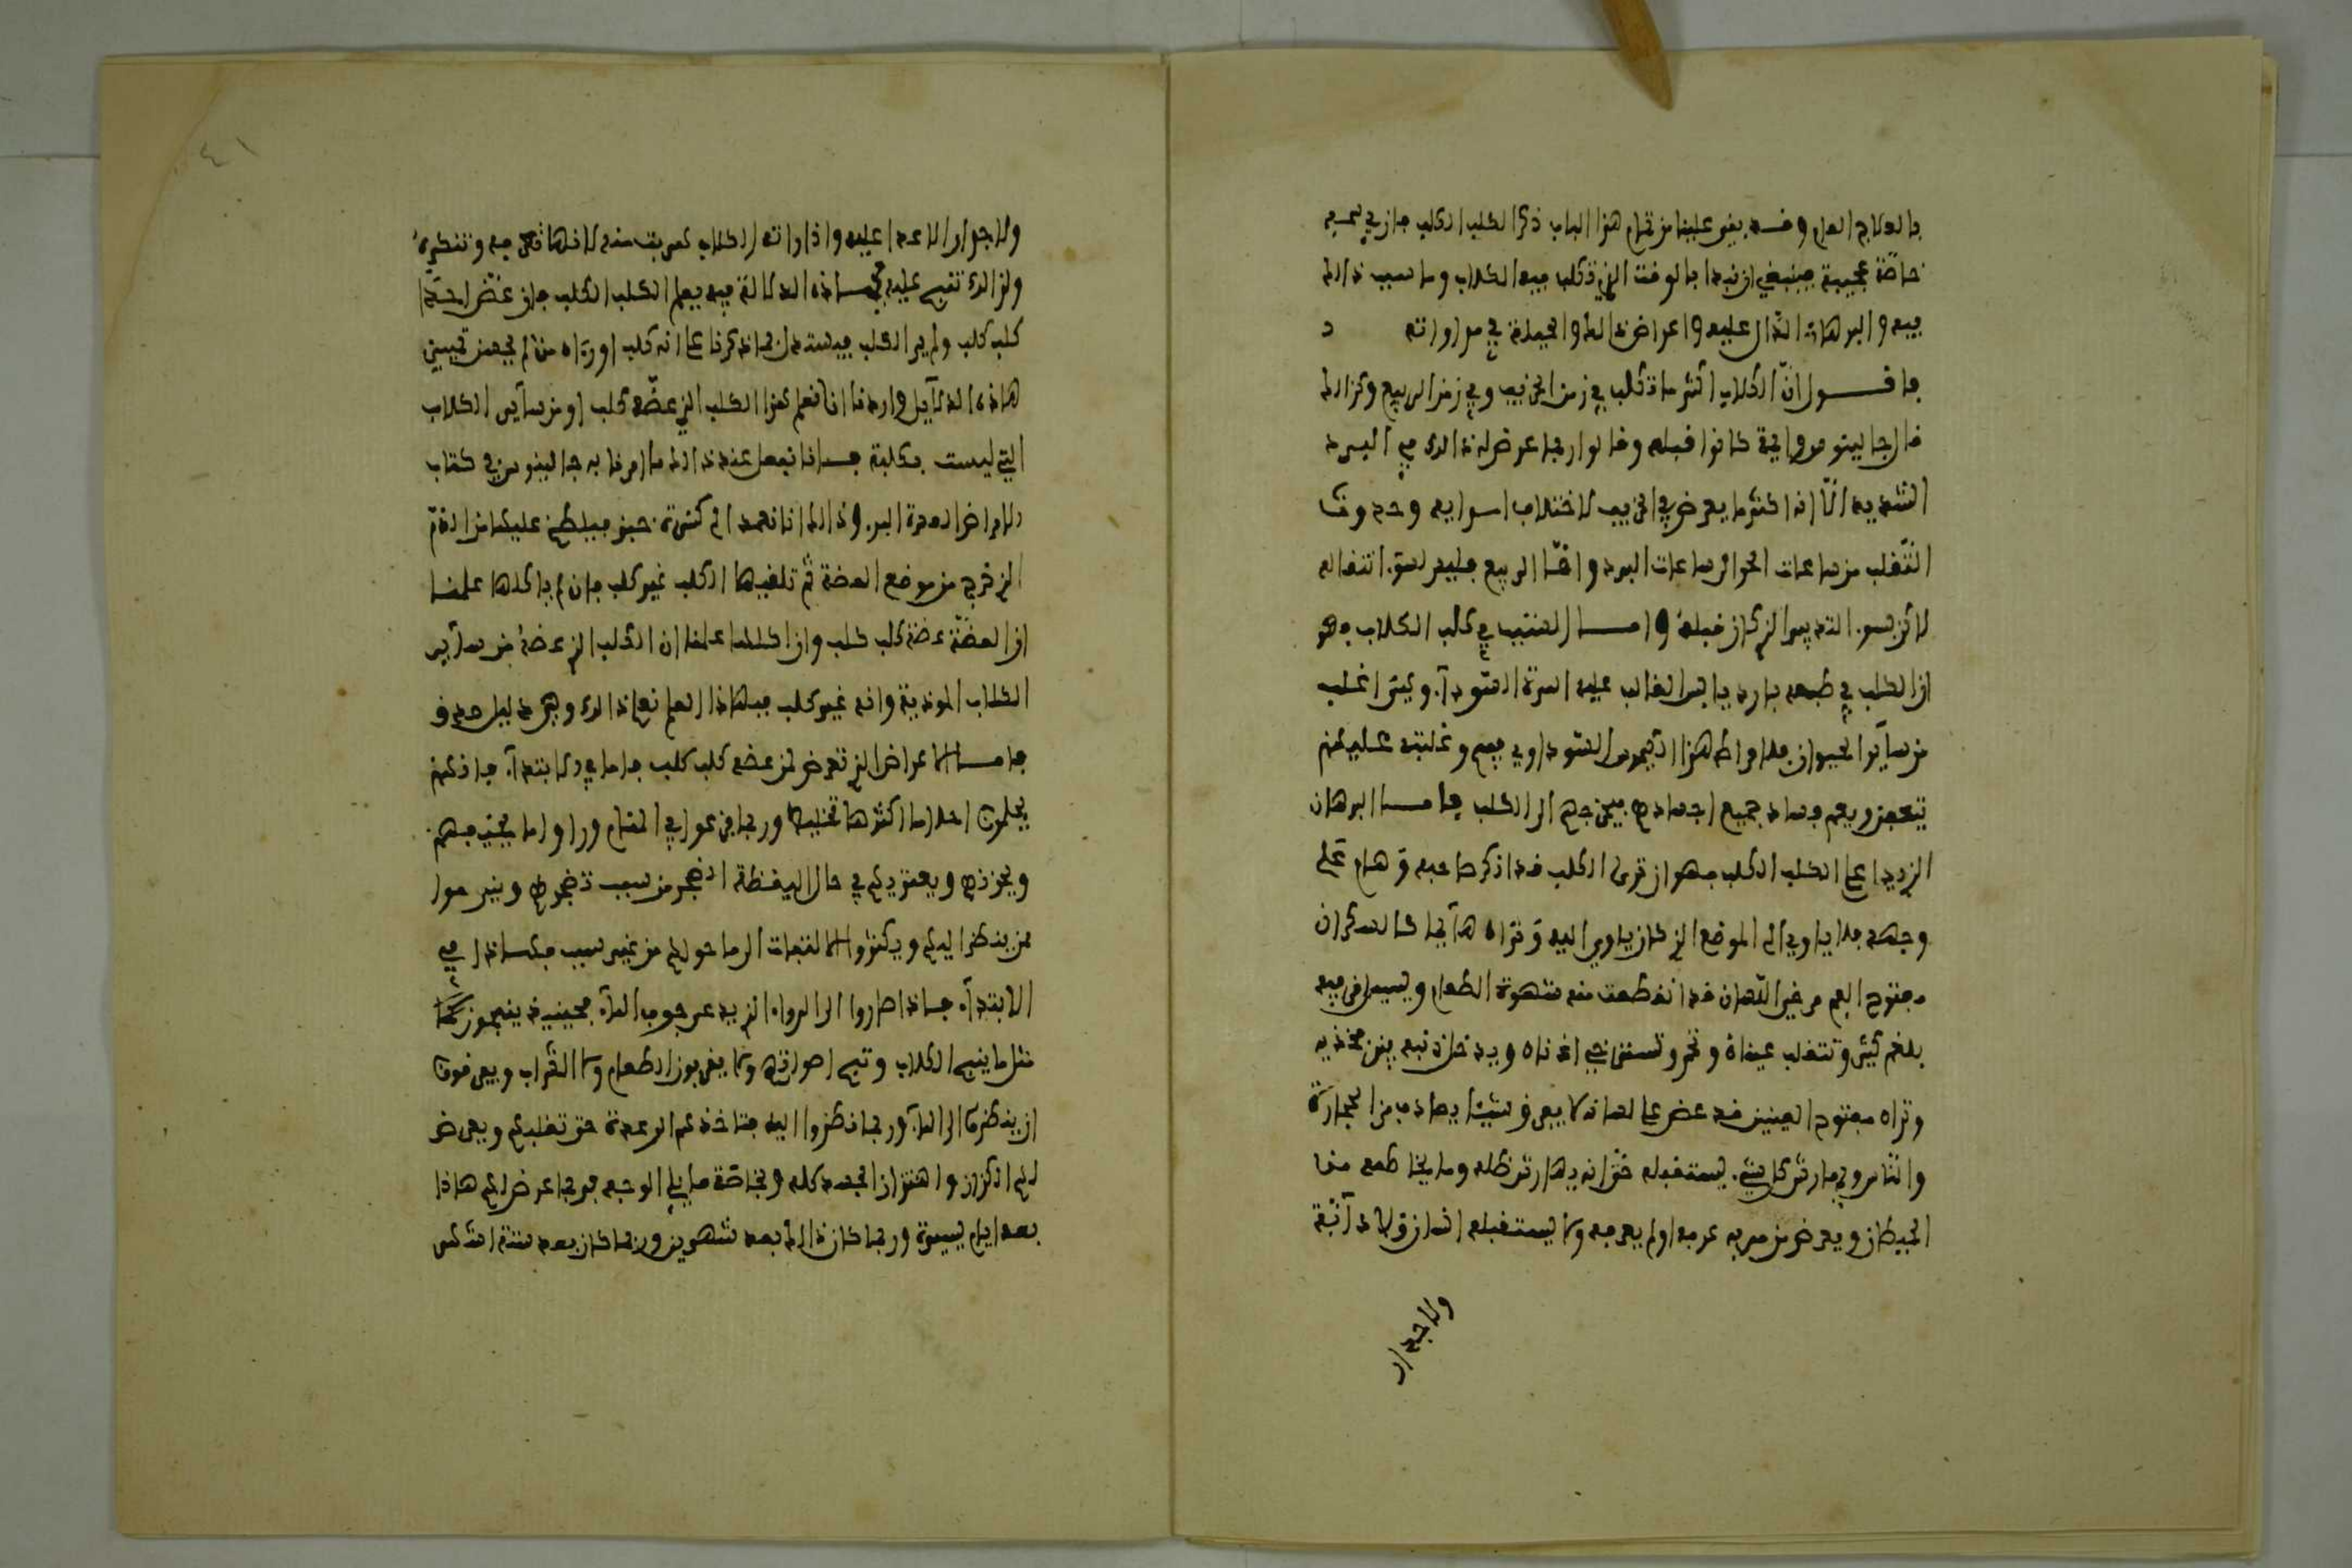 بالعلاج العام وقد بقى علينا من تمام هذا الباب ذكر الكلب الكلب فان في سمه
خاصة عجيبة فينبغي ان نبدا بالوقت الذي تكلب فيه الكلاب وما سبب ذالك
فيه والبرهان الدال عليه واعراض ذالك والحيلة في مداواته
فاقول ان الكلاب اكثر ما تكلب في زمن الخريف وفي زمن الربيع وكذالك
قال جالينوس وايمة كانوا قبله وقالوا ربما عرض لها ذالك في البرد
الشديد الا انه اكثر ما يعرض في الخريف لاختلاف اسوايه وحدوث
التقلب من ساعات الحر الى ساعات البرد واما الربيع فليس لسوء انتقاله
لاكن لسوء التدبير الذي كان قبله واما السبب في كلب الكلاب فهو
ان الكلب في طبعه بارد يابس الغالب عليه المرة السوداء وهي اغلب
من سآير الحيوان فلافراط هذا الكيموس السوداوي فيهم وغلبته عليهم
يتعفن ويعم فساد جميع اجسادهم فيخرجهم الى الكلب فاما البرهان
الذي يدل على الكلب الكلب فهو ان ترى الكلب قد انكر صاحبه وهام على
وجهه فلا ياوي الى الموضع الذي كان ياوي اليه وتراه هآيما كالسكران
مفتوح الفم مرخي اللسان قد انقطعت منه شهوة الطعام ويسيل من فيه
بلغم كثير وتنقلب عيناه وتحمر وتسترخي اذناه ويدخل ذنبه بين فخذيه
وتراه مفتوح العينين قد عض على لسانه لا يعرف شيئا يصادف من الحجارة
والناس ويهار شر كل شيء يستقبله حتى انه يهار شر ظله وما يخاطمه من
الحيطان ويعرض من مر به عرفه او لم يعرفه ولا يستقبله انسان ولا دآبة
ولا جدار
٤١
ولا جدار الا عدا عليه واذا راته الكلاب هربت منه لانها تعرفه وتنكره
ولذالك تنبح عليه فبهاذه الدلالة فيه يعلم الكلب الكلب فان عض احدا
كلب كلب ولم ير الكلب فيستدل بما ذكرنا على انه كلب او رءاه من لم يحسن تمييز
هاذه الدلآيل واردنا ان نعلم هذا الكلب الذي عضه كلب او من سآير الكلاب
التي ليست بكلبة فانا نفعل عند ذالك ما امرنا به جالينوس في كتاب
الامراض العسرة البرء وذالك انا نعمد الى كسرة خبز فيلطخ عليها من الدم
الذي خرج من موضع العضة ثم تلقيها الكلب غير كلب فان لم ياكلها علمنا
ان العضة عضة كلب كلب وان اكلها علمنا ان الكلب الذي عضه من سآير
الكلاب الموذية وانه غير كلب فبهاذا العلم نعلم ذالك وهي دليل صدق
فاما الاعراض التي تعرض لمن عضه كلب كلب فاما في الابتدآء فانهم
يحلمون احلاما اكثرها تخليط وربما فزعوا في المنام وراوا ما يخيفهم
ويحزنهم ويعتريهم في حال اليقظة الضجر من سبب تضجرهم وينفرحوا
ممن ينظر اليهم ويكثروا الالتفات الى ما حولهم من غير سبب فهاذا في
الابتدآء فاذا صاروا الى الرداءة الذي يدعى خوف المآء فحينيذ ينبحون كما
مثل ما ينبح الكلاب وتبح اصواتهم ولا يقربون الطعام ولا الشراب ويعرفون
ان ينظروا الى المآء وربما نظروا اليه فتاخذهم الرعدة حتى تغلبهم ويعرض
لهم الكزاز واهتزاز الجسد كله وخاصة ما يلي الوجه فربما عرض لهم هاذا
بعد ايام يسيرة وربما كان ذالك بعد شهرين وربما كان بعد ستة اشهر